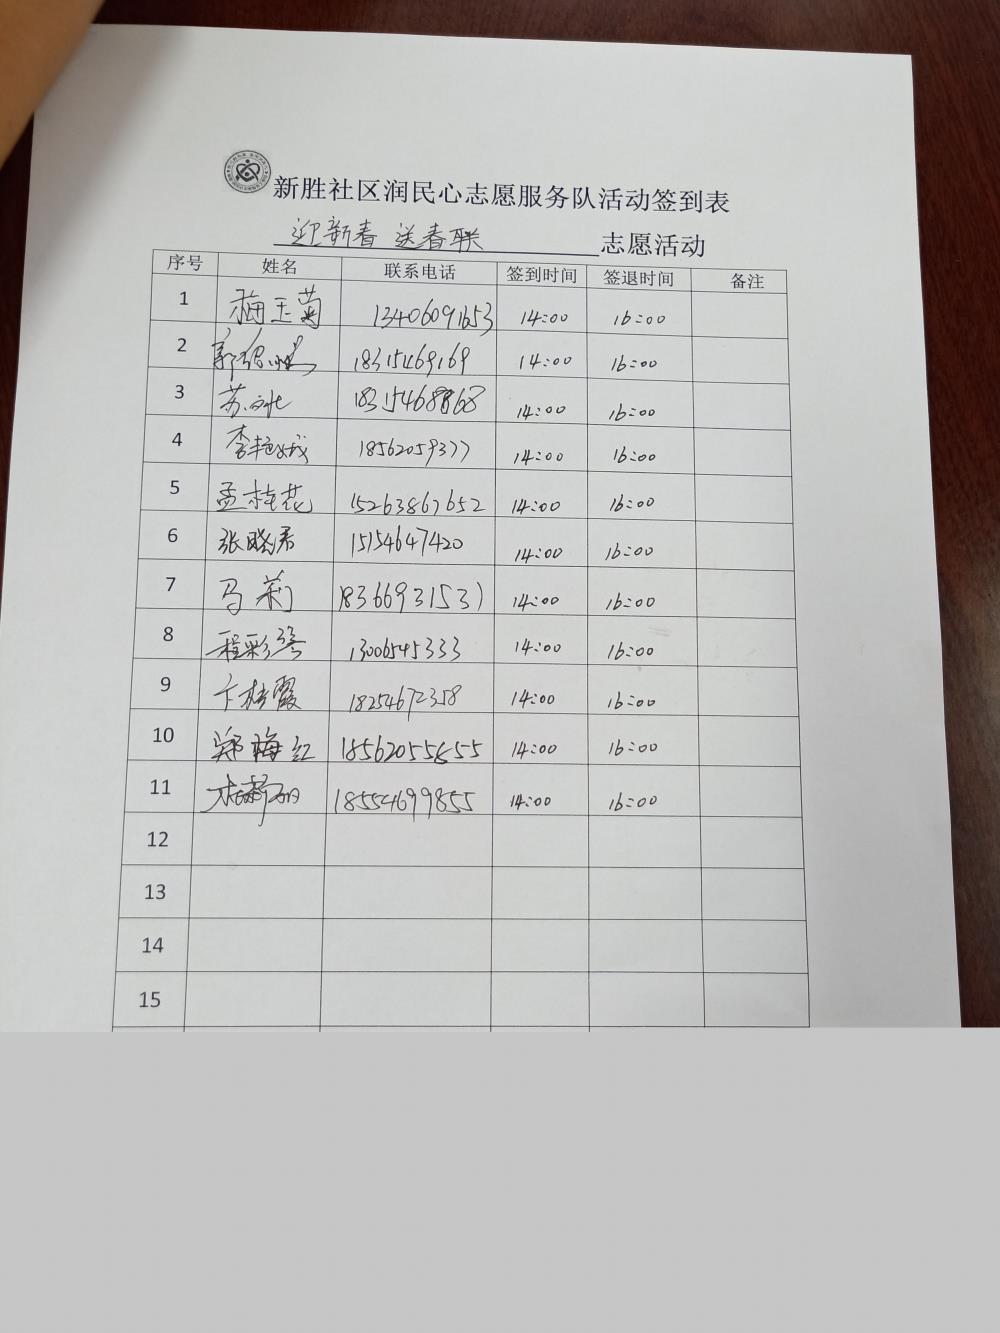 新胜社区润民心志愿服务队活动签到表
迎新春 送春联 志愿活动
序号 姓名 联系电话 签到时间 签退时间 备注
1 梅玉菊 13406091653 14:00 16:00
2 18315469169 14:00 16:00
3 苏 14:00 16:00
4 李艳娥 18562059377 14:00 16:00
5 孟桂花 15263867652 14:00 16:00
6 张晓君 15154647420 14:00 16:00
7 马莉 18366931531 14:00 16:00
8 程彩琴 13006545333 14:00 16:00
9 卞桂霞 18254672358 14:00 16:00
10 郑梅红 18562055855 14:00 16:00
11 18554699855 14:00 16:00
12
13
14
15